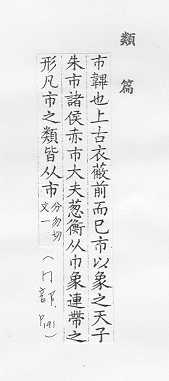 類篇
市韠也上古衣蔽前而已市以象之天子
朱市諸侯赤市大夫葱衡从巾象連帶之
形凡市之類皆从市分勿切文一